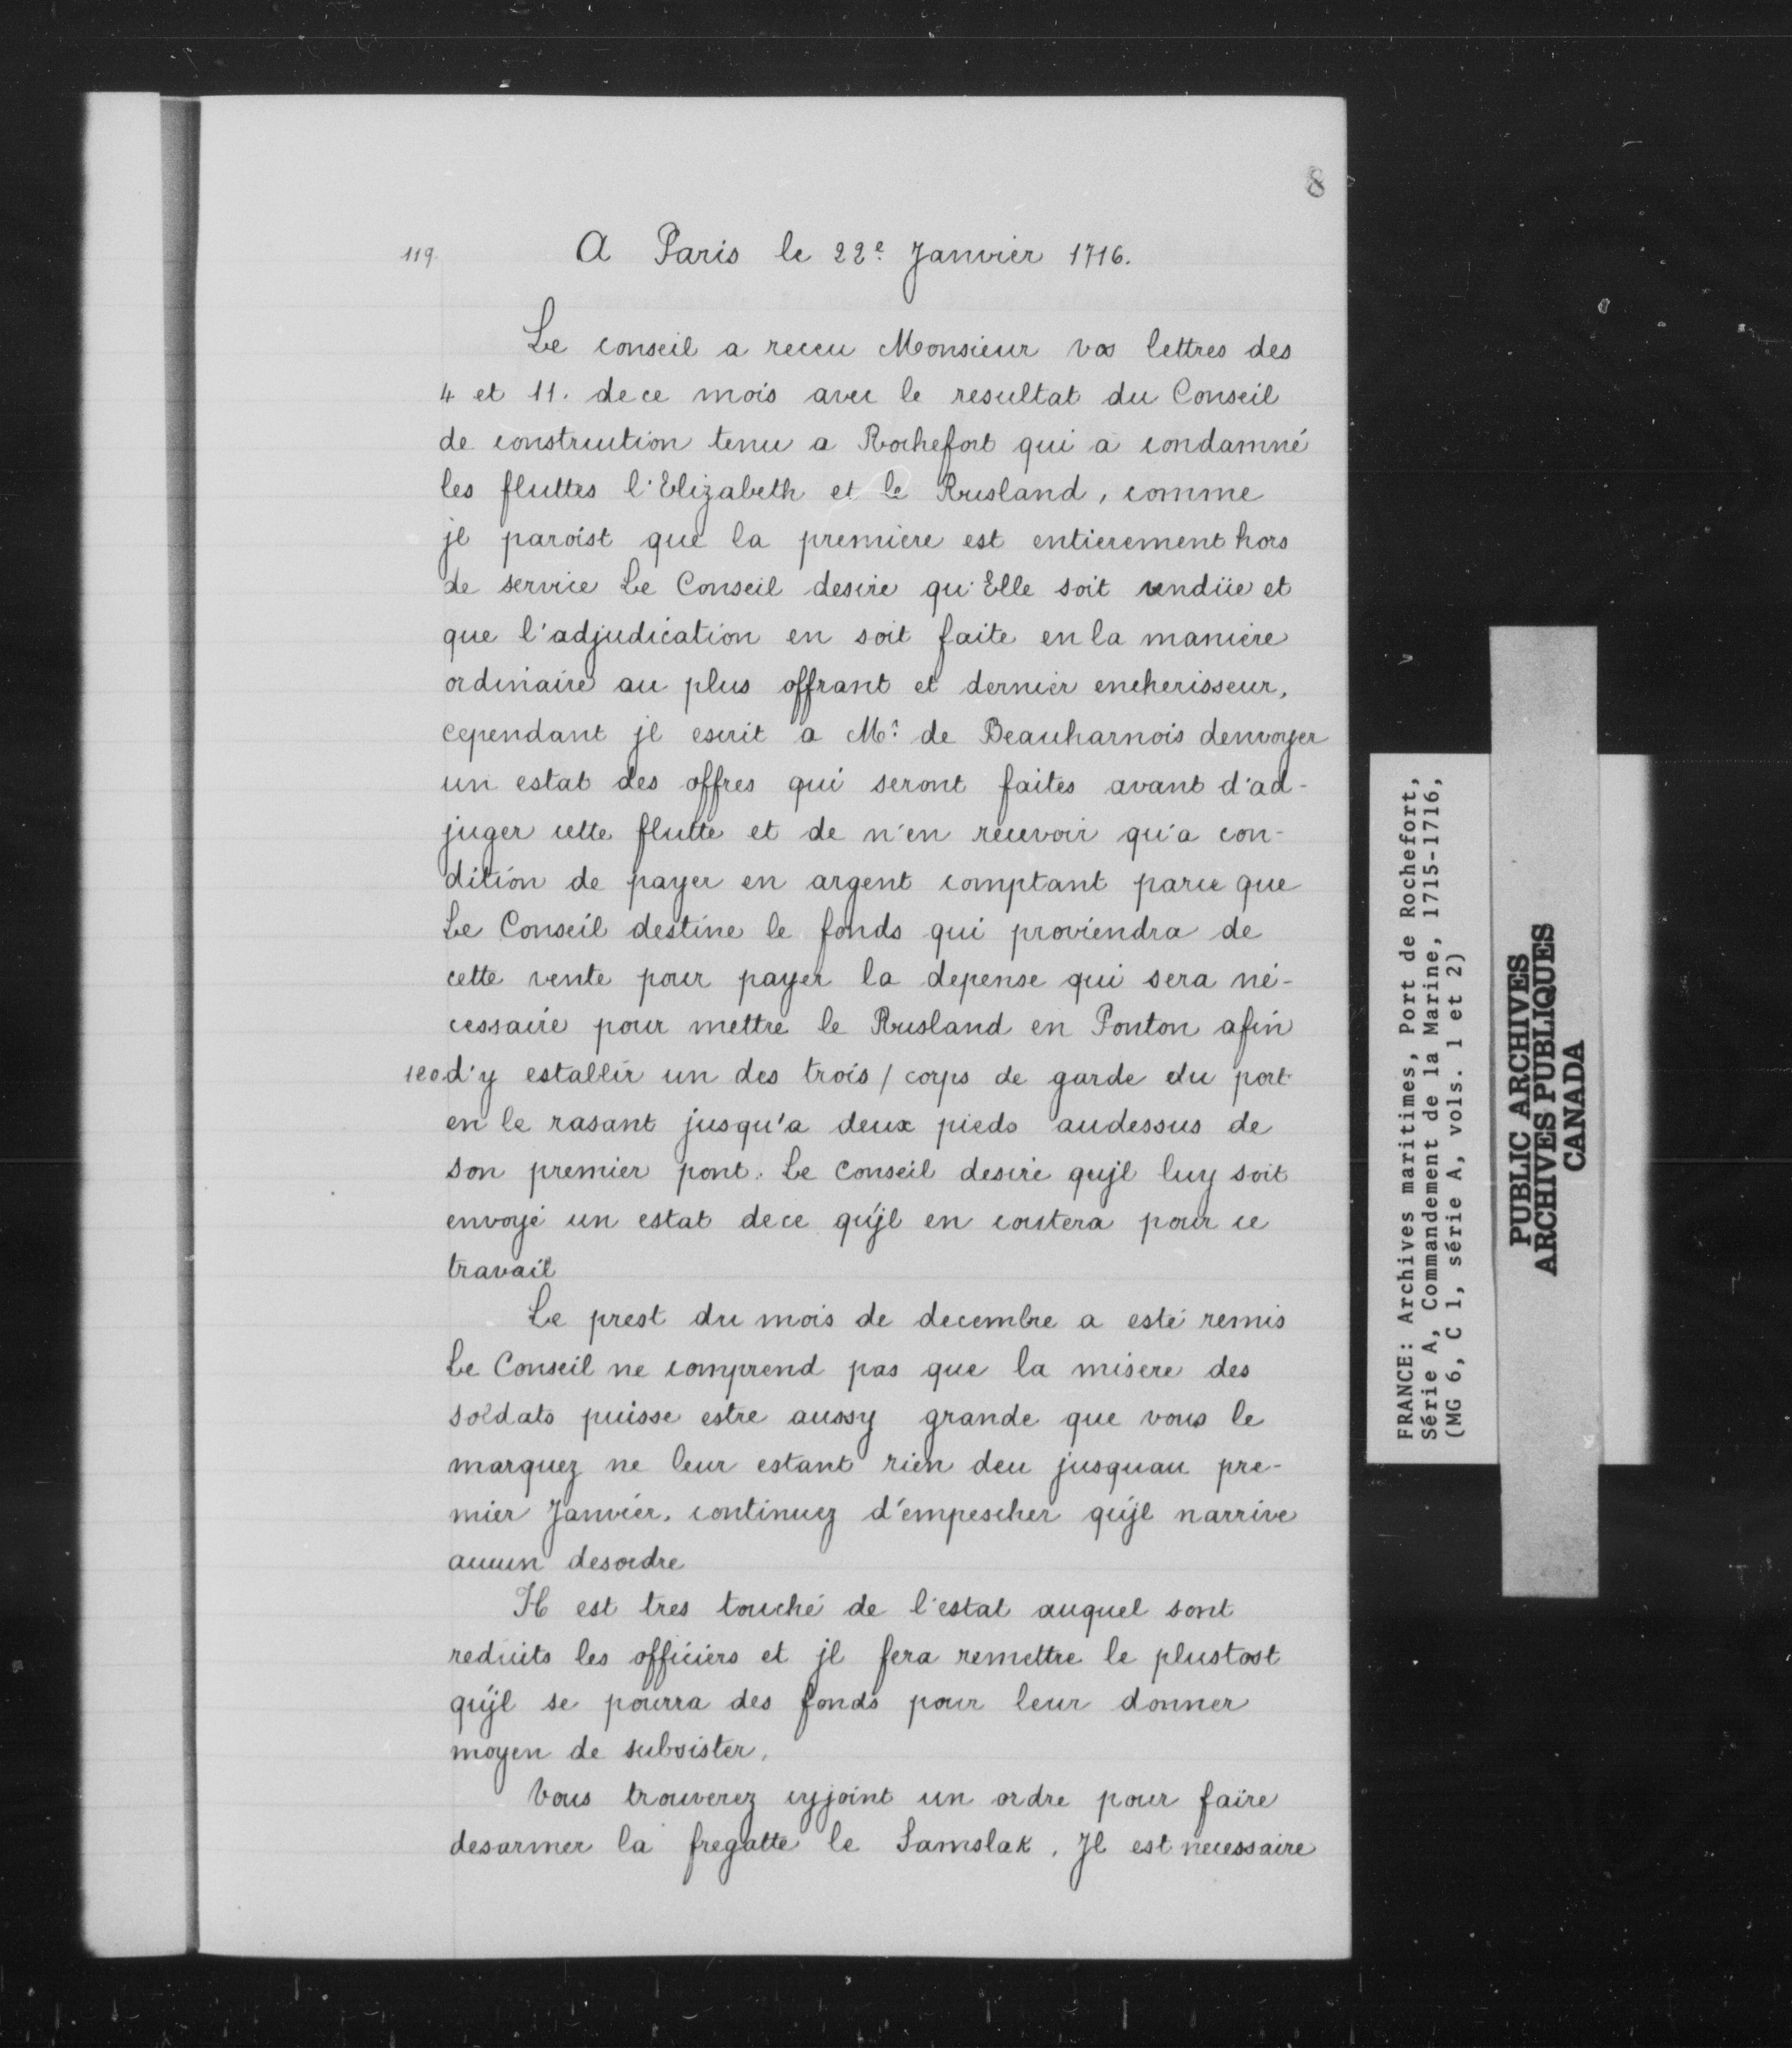 8
119.
A Paris le 22e Janvier 1716.
Le conseil a receu Monsieur vos lettres des
4 et 11. de ce mois avec le resultat du Conseil
de construction tenu a Rochefort qui a condamné
les fluttes l'Elizabeth et le Rusland, comme
jl paroist que la premiere est entierement hors
de service Le Conseil desire qu'Elle soit vendüe et
que l'adjudication en soit faite en la maniere
ordinaire au plus offrant et dernier encherisseur,
cependant jl escrit a Mr. de Beauharnois denvoyer
un estat des offres qui seront faites avant d'ad-
juger cette flutte et de n'en recevoir qu'a con-
dition de payer en argent comptant parce que
Le Conseil destine le fonds qui proviendra de
cette vente pour payer la depense qui sera né-
cessaire pour mettre le Rusland en Ponton afin
120. d'y establir un des trois / corps de garde du port
en le rasant jusqu'a deux pieds audessus de
son premier pont. Le Conseil desire qujl luy soit
envoyé un estat de ce qujl en coustera pour ce
travail
Le prest du mois de decembre a esté remis
Le Conseil ne comprend pas que la misere des
soldats puisse estre aussy grande que vous le
marquez ne leur estant rien deu jusquau pre-
mier Janvier. continuez d'empescher qujl narrive
aucun desordre
Il est tres touché de l'estat auquel sont
reduits les officiers et jl fera remettre le plustost
qujl se pourra des fonds pour leur donner
moyen de subsister.
Vous trouverez cyjoint un ordre pour faire
desarmer la fregatte le Samslak. Jl est necessaire
FRANCE: Archives maritimes, Port de Rochefort,
Série A, Commandement de la Marine, 1715-1716,
(MG 6, C 1, série A, vols. 1 et 2)
PUBLIC ARCHIVES
ARCHIVES PUBLIQUES
CANADA